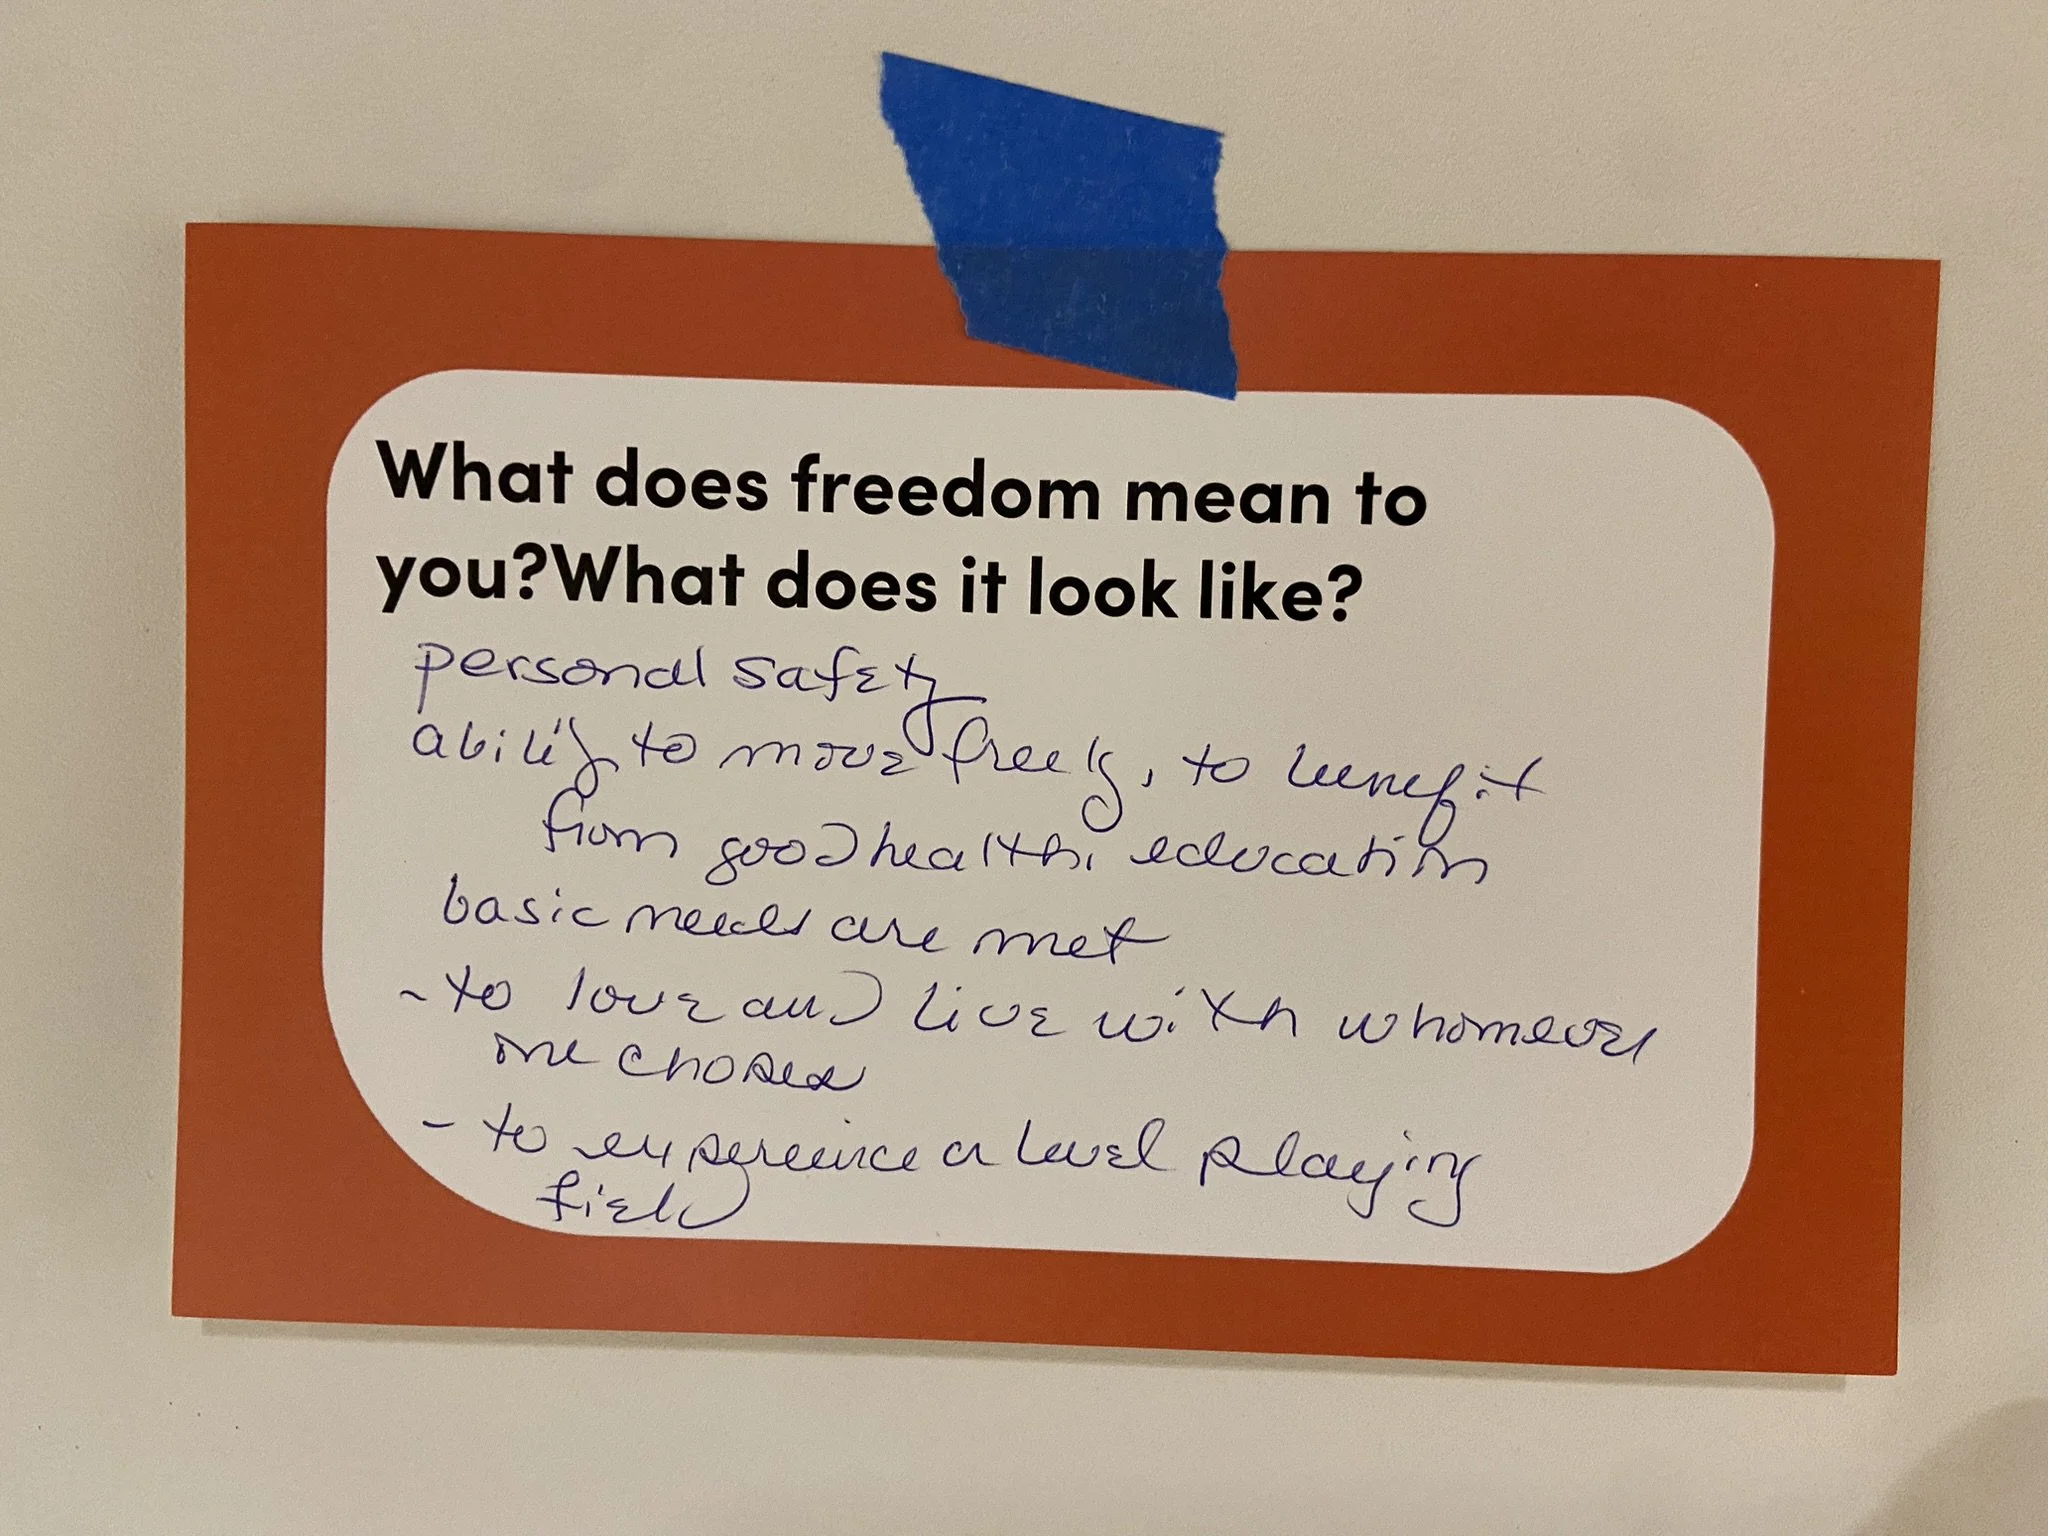 What does freedom mean to
you?What does it look like?
personal safety
ability to move freely, to benefit
from good health, education
basic needs are met
- to love and live with whomever
one choses
- to experience a level playing
field